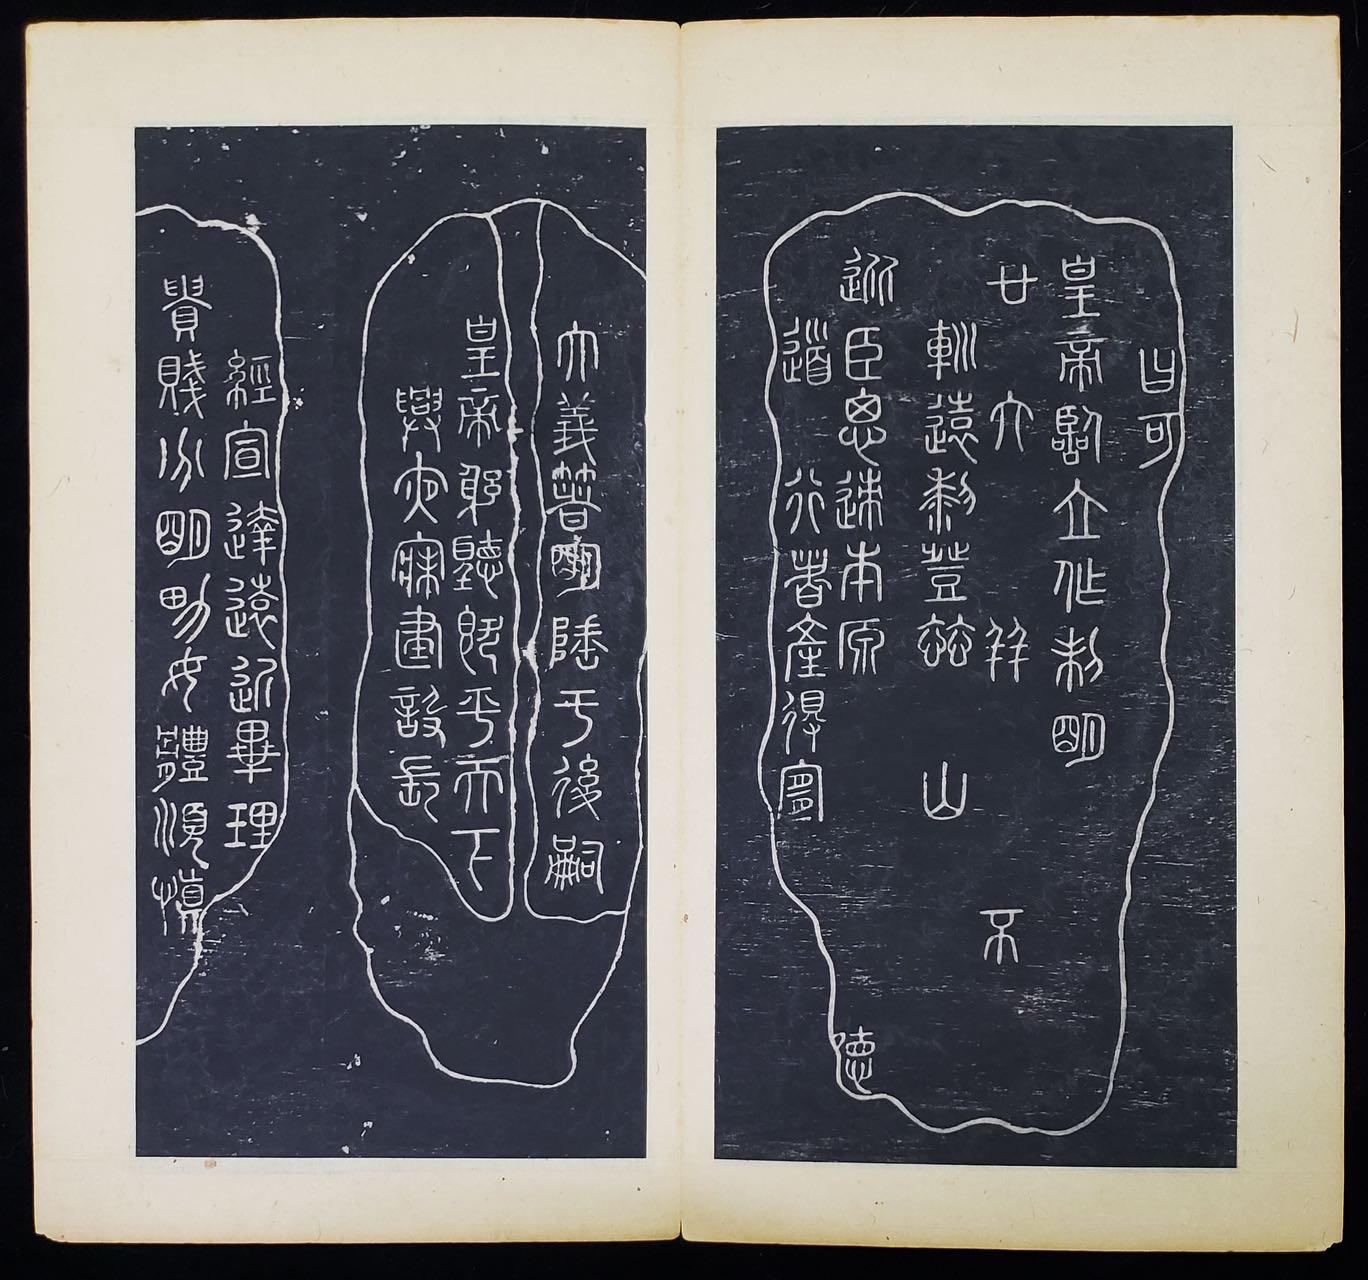 曰可
皇帝臨立作制明
廿六 并 不
巡遠黎登茲 山
從臣思迹本原 德
道 行者產得宜
大義箸明陲于後嗣
皇帝躬聽既平天下
興夜寐建設長
經宣達遠近畢理
貴賤分明男女體順慎